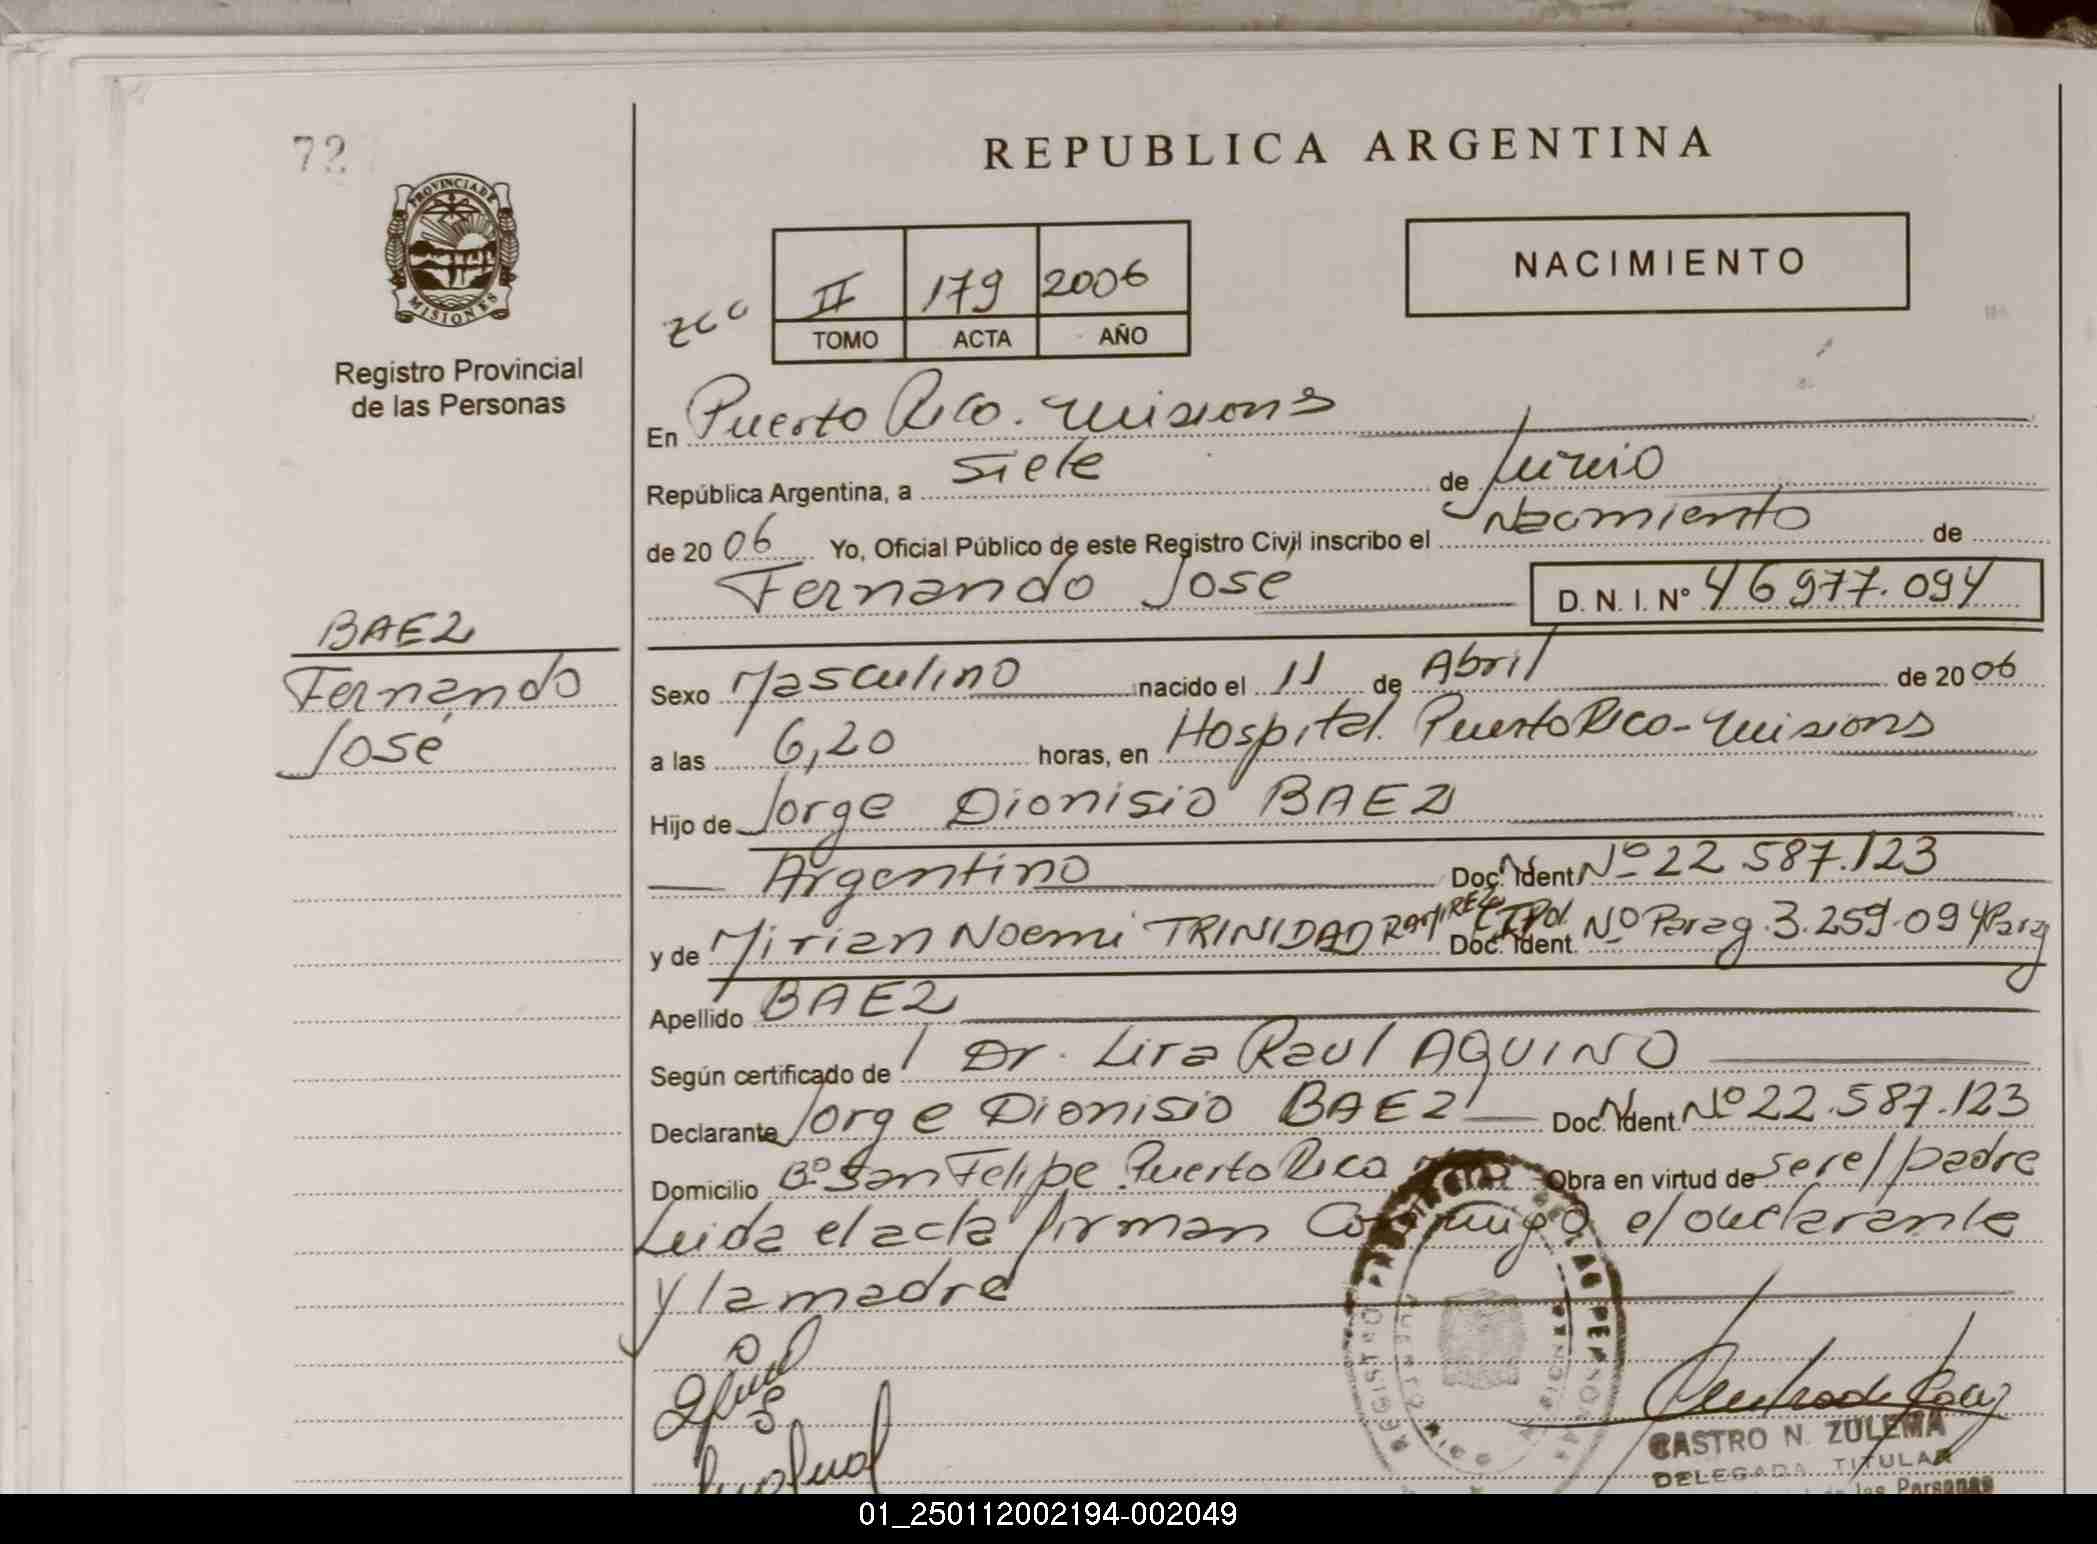 72
REPUBLICA ARGENTINA
PROVINCIA DE
MISIONES
Registro Provincial
de las Personas
II 179 2006
TOMO ACTA AÑO
NACIMIENTO
En Puerto Rico. Misiones
República Argentina, a siete de Junio
de 2006 Yo, Oficial Público de este Registro Civil inscribo el Nacimiento de
Fernando José D. N. I. Nº 46977.094
BAEZ
Fernando
José
Sexo Masculino nacido el 11 de Abril de 2006
a las 6,20 horas, en Hospital. Puerto Rico - Misiones
Hijo de Jorge Dionisio BAEZ
Argentino Doc. Ident Nº 22 587.123
y de Mirian Noemi TRINIDAD RAMIREZ Doc. Ident. Nº Parag. 3.259.094 Parag
Apellido BAEZ
Según certificado de Dr. Lira Raul AQUINO
Declarante Jorge Dionisio BAEZ Doc. Ident. Nº 22.587.123
Domicilio Bº San Felipe Puerto Rico Obra en virtud de ser el padre
Leida el acta firman Conmigo el declarante
y la madre
CASTRO N. ZULEMA
DELEGADA TITULAR
de las Personas
01_250112002194-002049